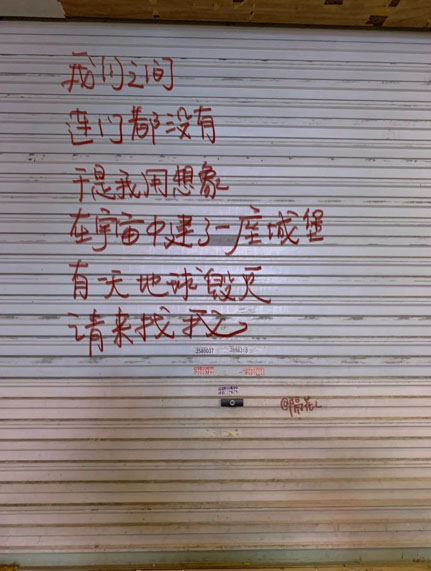 我们之间
连门都没有
于是我用想象
在宇宙中建了一座城堡
有一天地球毁灭
请来找我